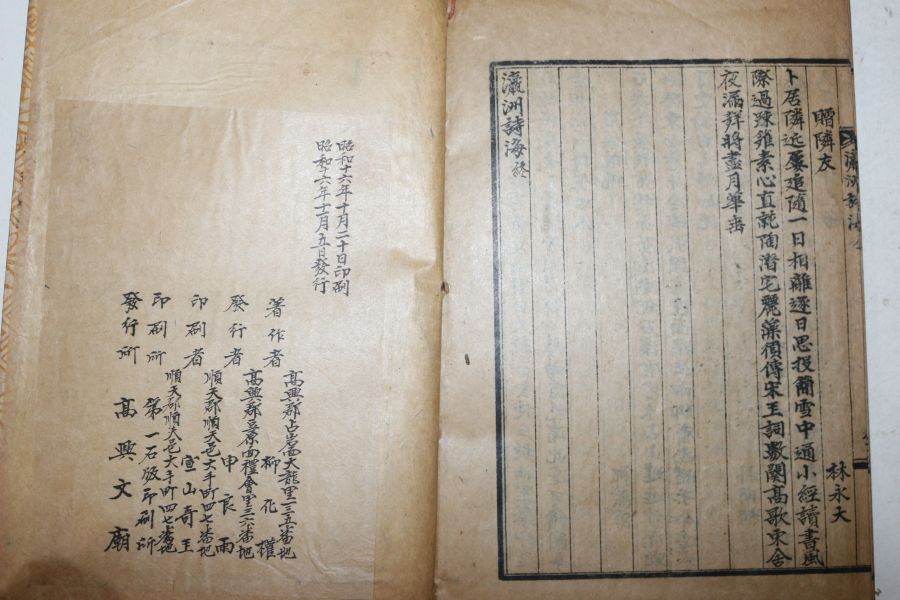 瀛洲詩海
贈隣友 林永天
卜居隣近屢追隨一日相離逐日思投簡雪中通小經讀書風
際過踈籬素心直就陶潛宅麗藻湏傳宋玉詞數闋高歌東舍
夜漏聲將盡月華垂
瀛洲詩海 終
昭和十六年十月二十日印刷
昭和十六年十一月五日發行
高興郡占岩面大龍里三五番地
著作者 柳花權
高興郡豆原面禮會里三六番地
發行者 申良雨
順天郡順天邑大手町四七番地
印刷者 宝山奇玉
順天郡順天邑大手町四七番地
印刷所 第一石版印刷所
發行所 高興文廟